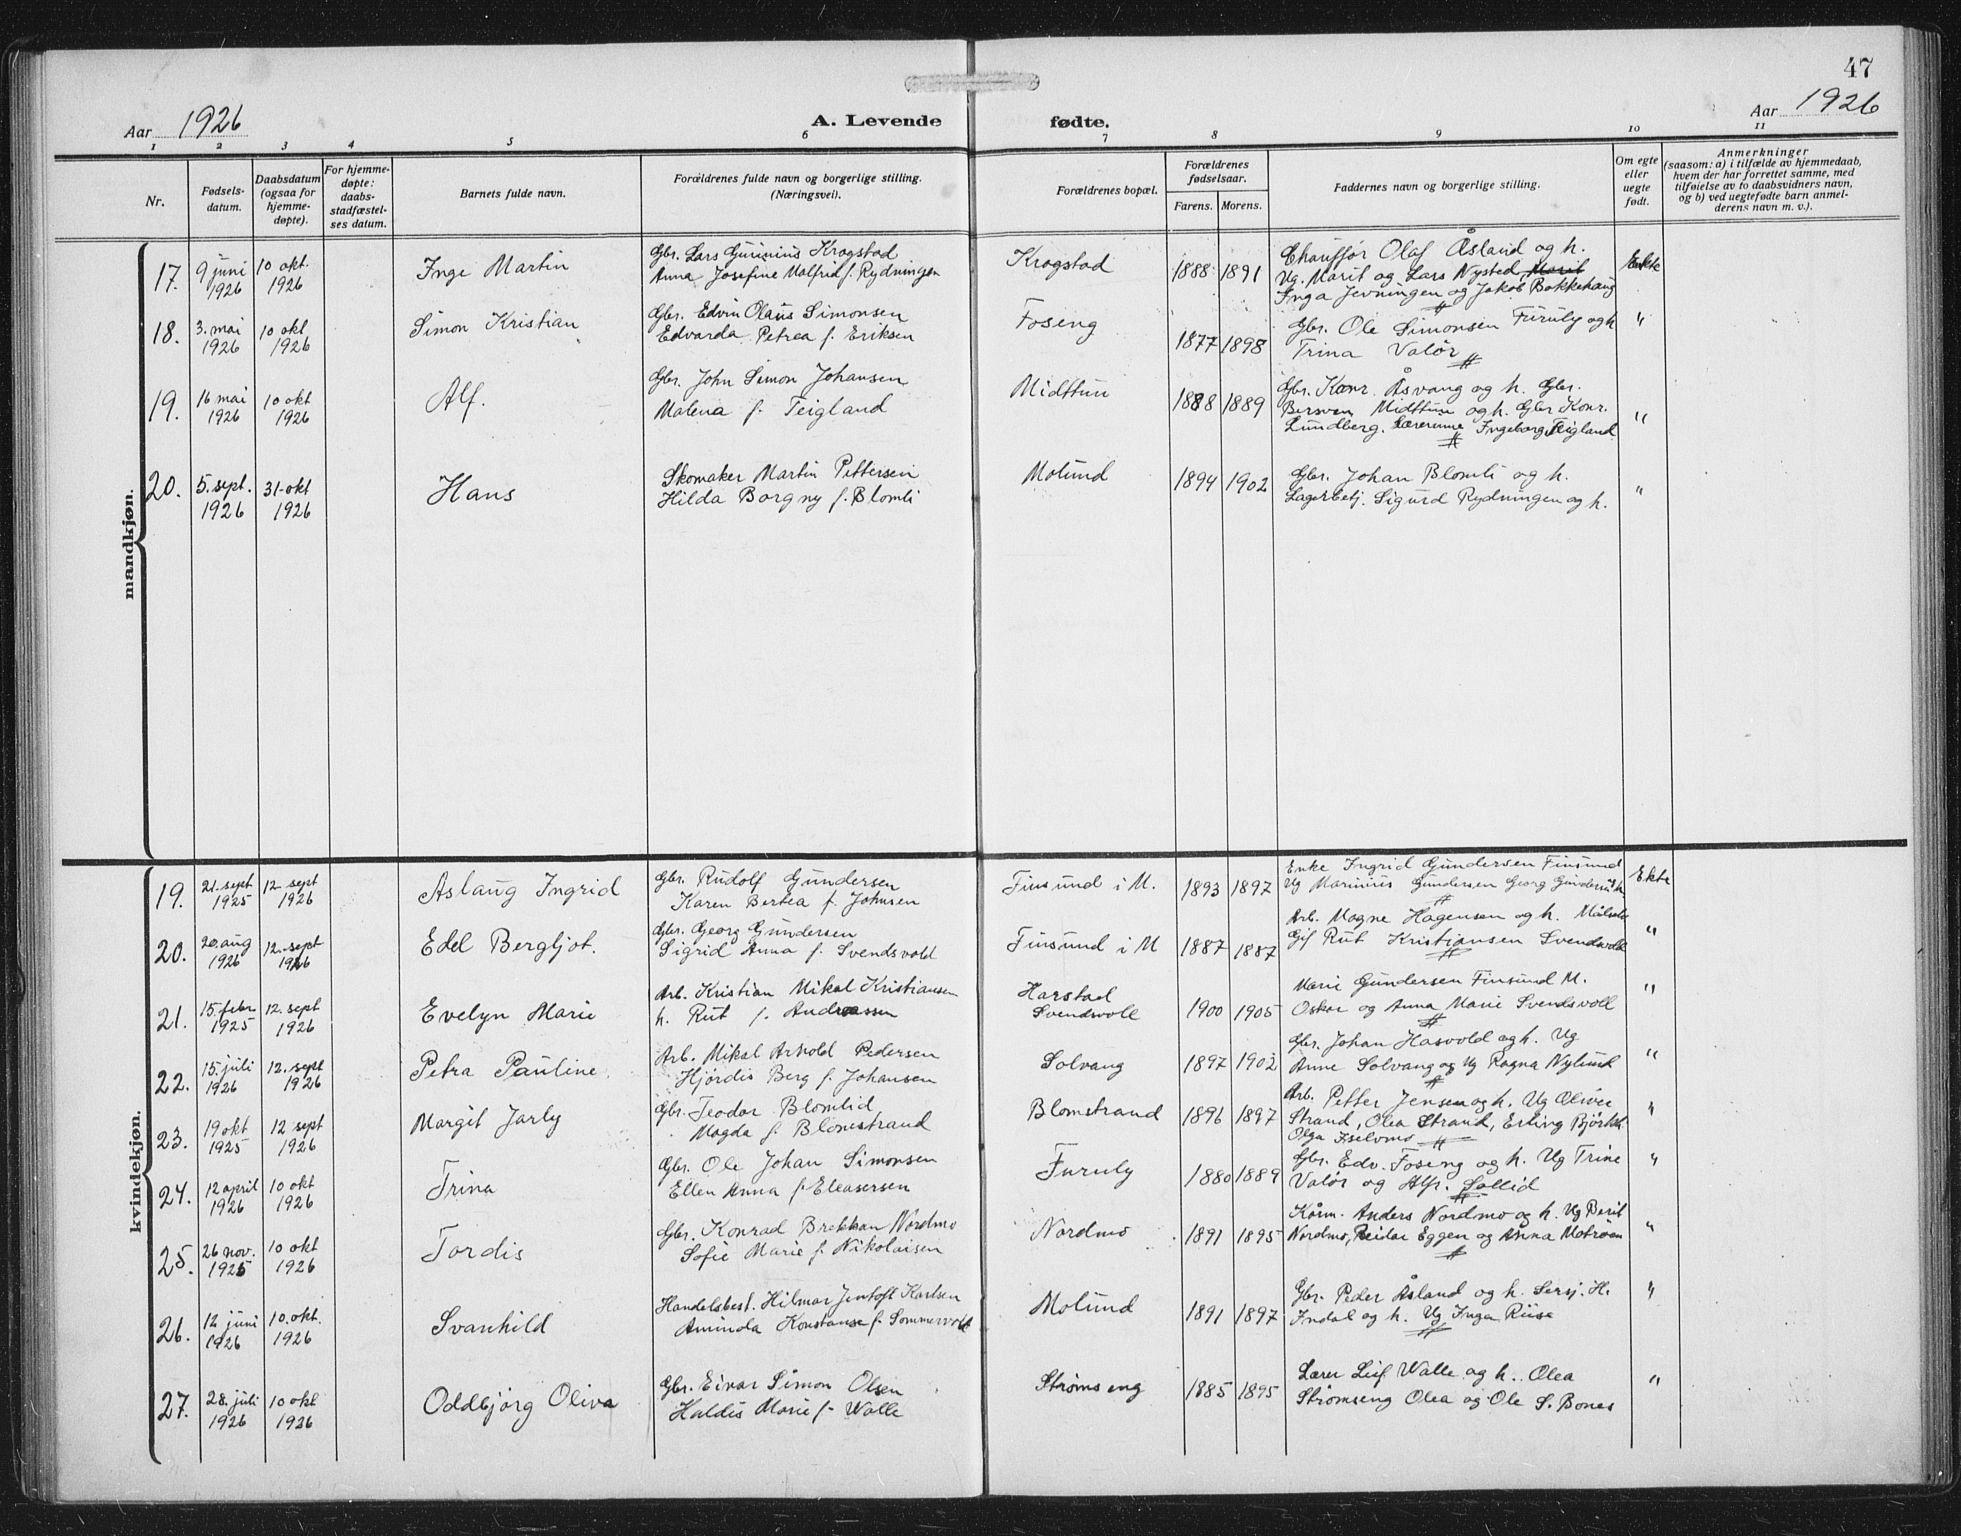 47
Aar 1926
A. Levende fødte.
Aar 1926
1 2 3 4 5 6 7 8 9 10 11
Nr.
Fødsels-
datum.
Daabsdatum
(ogsaa for
hjemme-
døpte).
For hjemme-
døpte:
daabs-
stadfæstel-
ses datum.
Barnets fulde navn.
Forældrenes fulde navn og borgerlige stilling.
(Næringsvei).
Forældrenes bopæl.
Forældrenes
fødselsaar.
Farens. Morens.
Faddernes navn og borgerlige stilling.
Om egte
eller
uegte
født.
Anmerkninger
(saasom: a) i tilfælde av hjemmedaab,
hvem der har forrettet samme, med
tilføielse av to daabsvidners navn,
og b) ved uegtefødte barn anmel-
derens navn m. v.).
mandkjøn.
17. 9 juni 1926 10 okt. 1926 Inge Martin
Gbr. Lars Guninius Krogstad
Anna Josefine Malfrid f. Rydningen
Krogstad 1888 1891
Chauffør Olaf Åsland og h.
Ug. Marit og Lars Nysted, Marit
Inga Jevningen og Jakob Bakkehaug
Ekte
18. 3. mai 1926 10 okt 1926 Simon Kristian
Gbr. Edvin Olaus Simonsen
Edvarda Petrea f. Eriksen
Foseng 1877 1898
Gbr. Ole Simonsen Furuly og h
Trina Valör
"
19. 16 mai 1926 10 okt 1926 Alf.
Gbr. John Simon Johansen
Malena f. Teigland
Midttun 1888 1889
Gbr. Konr. Åsvang og h. Gbr.
Bersven Midttun og h. Gbr Konr.
Lundberg. Lærerinne Ingeborg Teigland
"
20. 5. sept. 1926 31. okt 1926 Hans
Skomaker Martin Pettersen
Hilda Borgny f. Blomli
Molund 1894 1902
Gbr. Johan Blomli og h.
Lagerbetj. Sigurd Rydningen og h.
"
kvindekjøn.
19. 21. sept 1925 12. sept 1926 Aslaug Ingrid
Gbr. Rudolf Gundersen
Karen Bertea f. Johnsen
Finsund i M. 1893 1897
Enke Ingrid Gundersen Finsund
Ug Marinius Gundersen Georg Gundersen
Ekte
20. 20. aug 1926 12. sept 1926 Edel Bergljot.
Gbr. Georg Gundersen
Sigrid Anna f. Svendsvold
Finsund i M 1887 1887
Arb. Magne Hagensen og h. Målselv
Gif Rut Kristiansen Svendsvold
"
21. 15. febr 1925 12. sept 1926 Evelyn Marie
Arb. Kristian Mikal Kristiansen
h. Rut f. Andreassen
Harstad
Svendsvoll
1900 1905
Marie Gundersen Finsund M.
Oskar og Anna Marie Svendsvoll
"
22. 15. juli 1926 12. sept 1926 Petra Pauline
Arb. Mikal Arnold Pedersen
Hjördis Berg f. Johansen
Solvang 1897 1902
Gbr. Johan Hasvold og h. Ug
Anne Solvang og Ug Ragna Nylund
"
23. 19 okt 1925 12 sept 1926 Margit Jarly
Gbr. Teodor Blomlid
Magda f. Blomstrand
Blomstrand 1896 1897
Arb. Petter Jensen og h. Ug Oliver
Strand, Olea Strand, Erling Björkli
Olga Iselvmo
"
24. 12 april 1926 10 okt 1926 Trina
Gbr. Ole Johan Simonsen
Ellen Anna f. Eleasersen
Furuly 1880 1889
Gbr. Edv. Foseng og h. Ug Trine
Valör og Alfr. Sollid
"
25. 26 nov. 1925 10 okt 1926 Tordis
Gbr. Konrad Brekkan Nordmo
Sofie Marie f. Nikolaisen
Nordmo 1891 1895
Kårm. Anders Nordmo og h. Ug Beril
Nordmo, Reidar Eggen og Anna Motröen
"
26. 12 juni 1926 10. okt. 1926 Svanhild
Handelsbest. Hilmar Jentoft Karlsen
Aminda Konstanse f. Sommervold
Molund 1891 1897
Gbr. Peder Åsland og h. Sersj. H.
Indal og h. Ug Inga Riise
"
27. 28. juli 1926 10 okt 1926 Oddbjörg Oliva
Gbr. Einar Simon Olsen
Haldis Marie f. Walle
Strømseng 1885 1895
Lærer Leif Walle og h. Olea
Strømseng Olea og Ole S. Bones
"